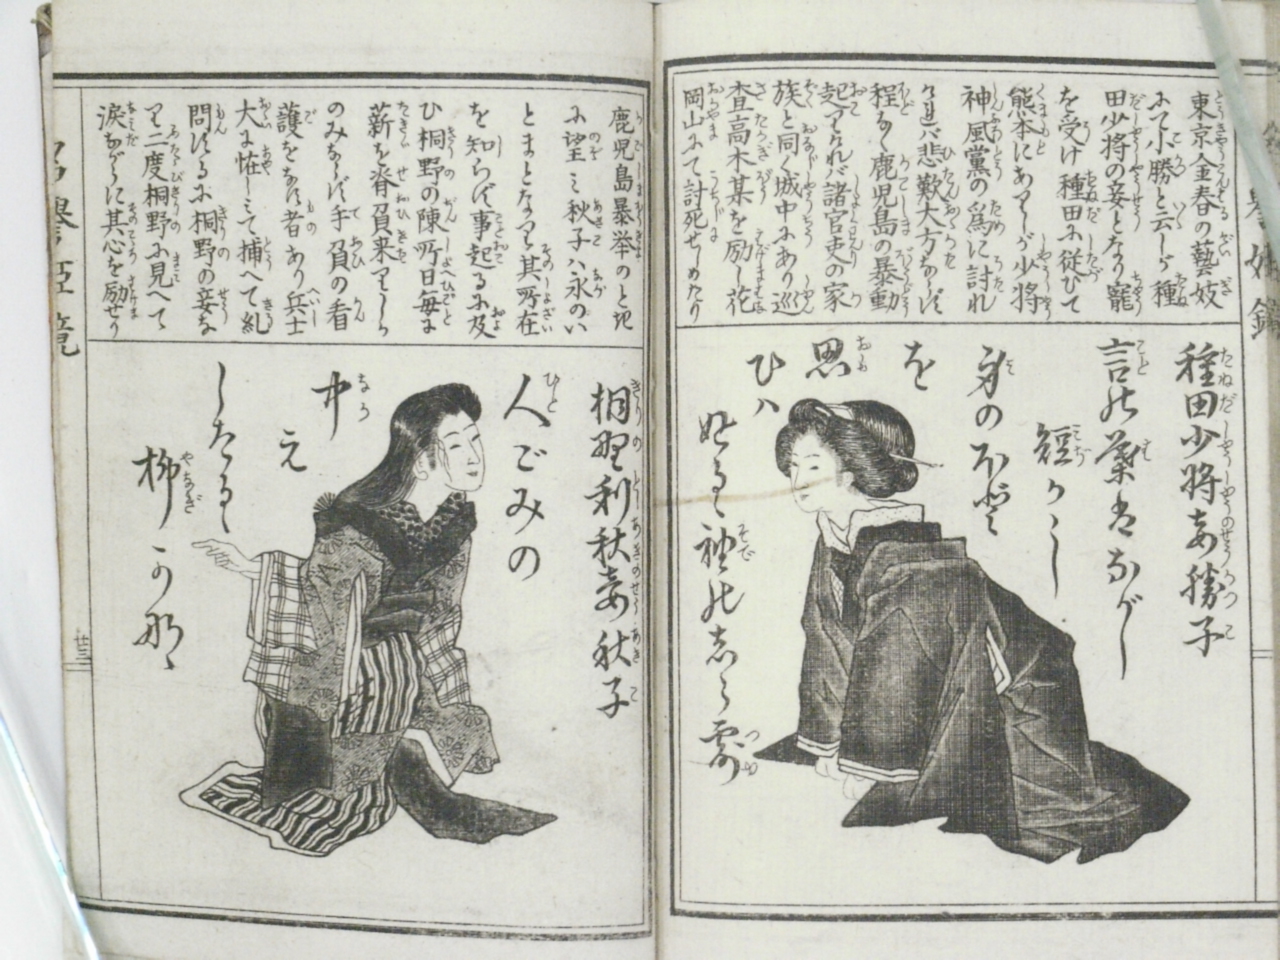 東京金春の藝妓
にて小勝と云しが種
田少将の妾となり寵
を受け種田に従ひて
熊本にありしが少将
神風黨の為に討れ
ければ悲歎大方ならず
程なく鹿児島の暴動
起りければ諸官吏の家
族と同く城中にあり巡
査高木某を励し花
岡山にて討死せしめたり
種田少将妾勝子
言の葉はながし
短かし
身のほど
を
思
ひハ
ぬるゝ袖の
鹿児島暴挙のと地
に望ミ秋子ハ永のい
とまとなりて其所在
を知らず事起るに及
ひ桐野の陳所日毎に
薪を脊負来りしら
のみならず手負の看
護をなす者あり兵士
大に怪しミて捕へて糺
問するに桐野の妾な
り二度桐野に見へて
涙ながらに其心を励せり
桐野利秋妾秋子
人ごみの
中
え
しだるゝ
柳
かな
廿三